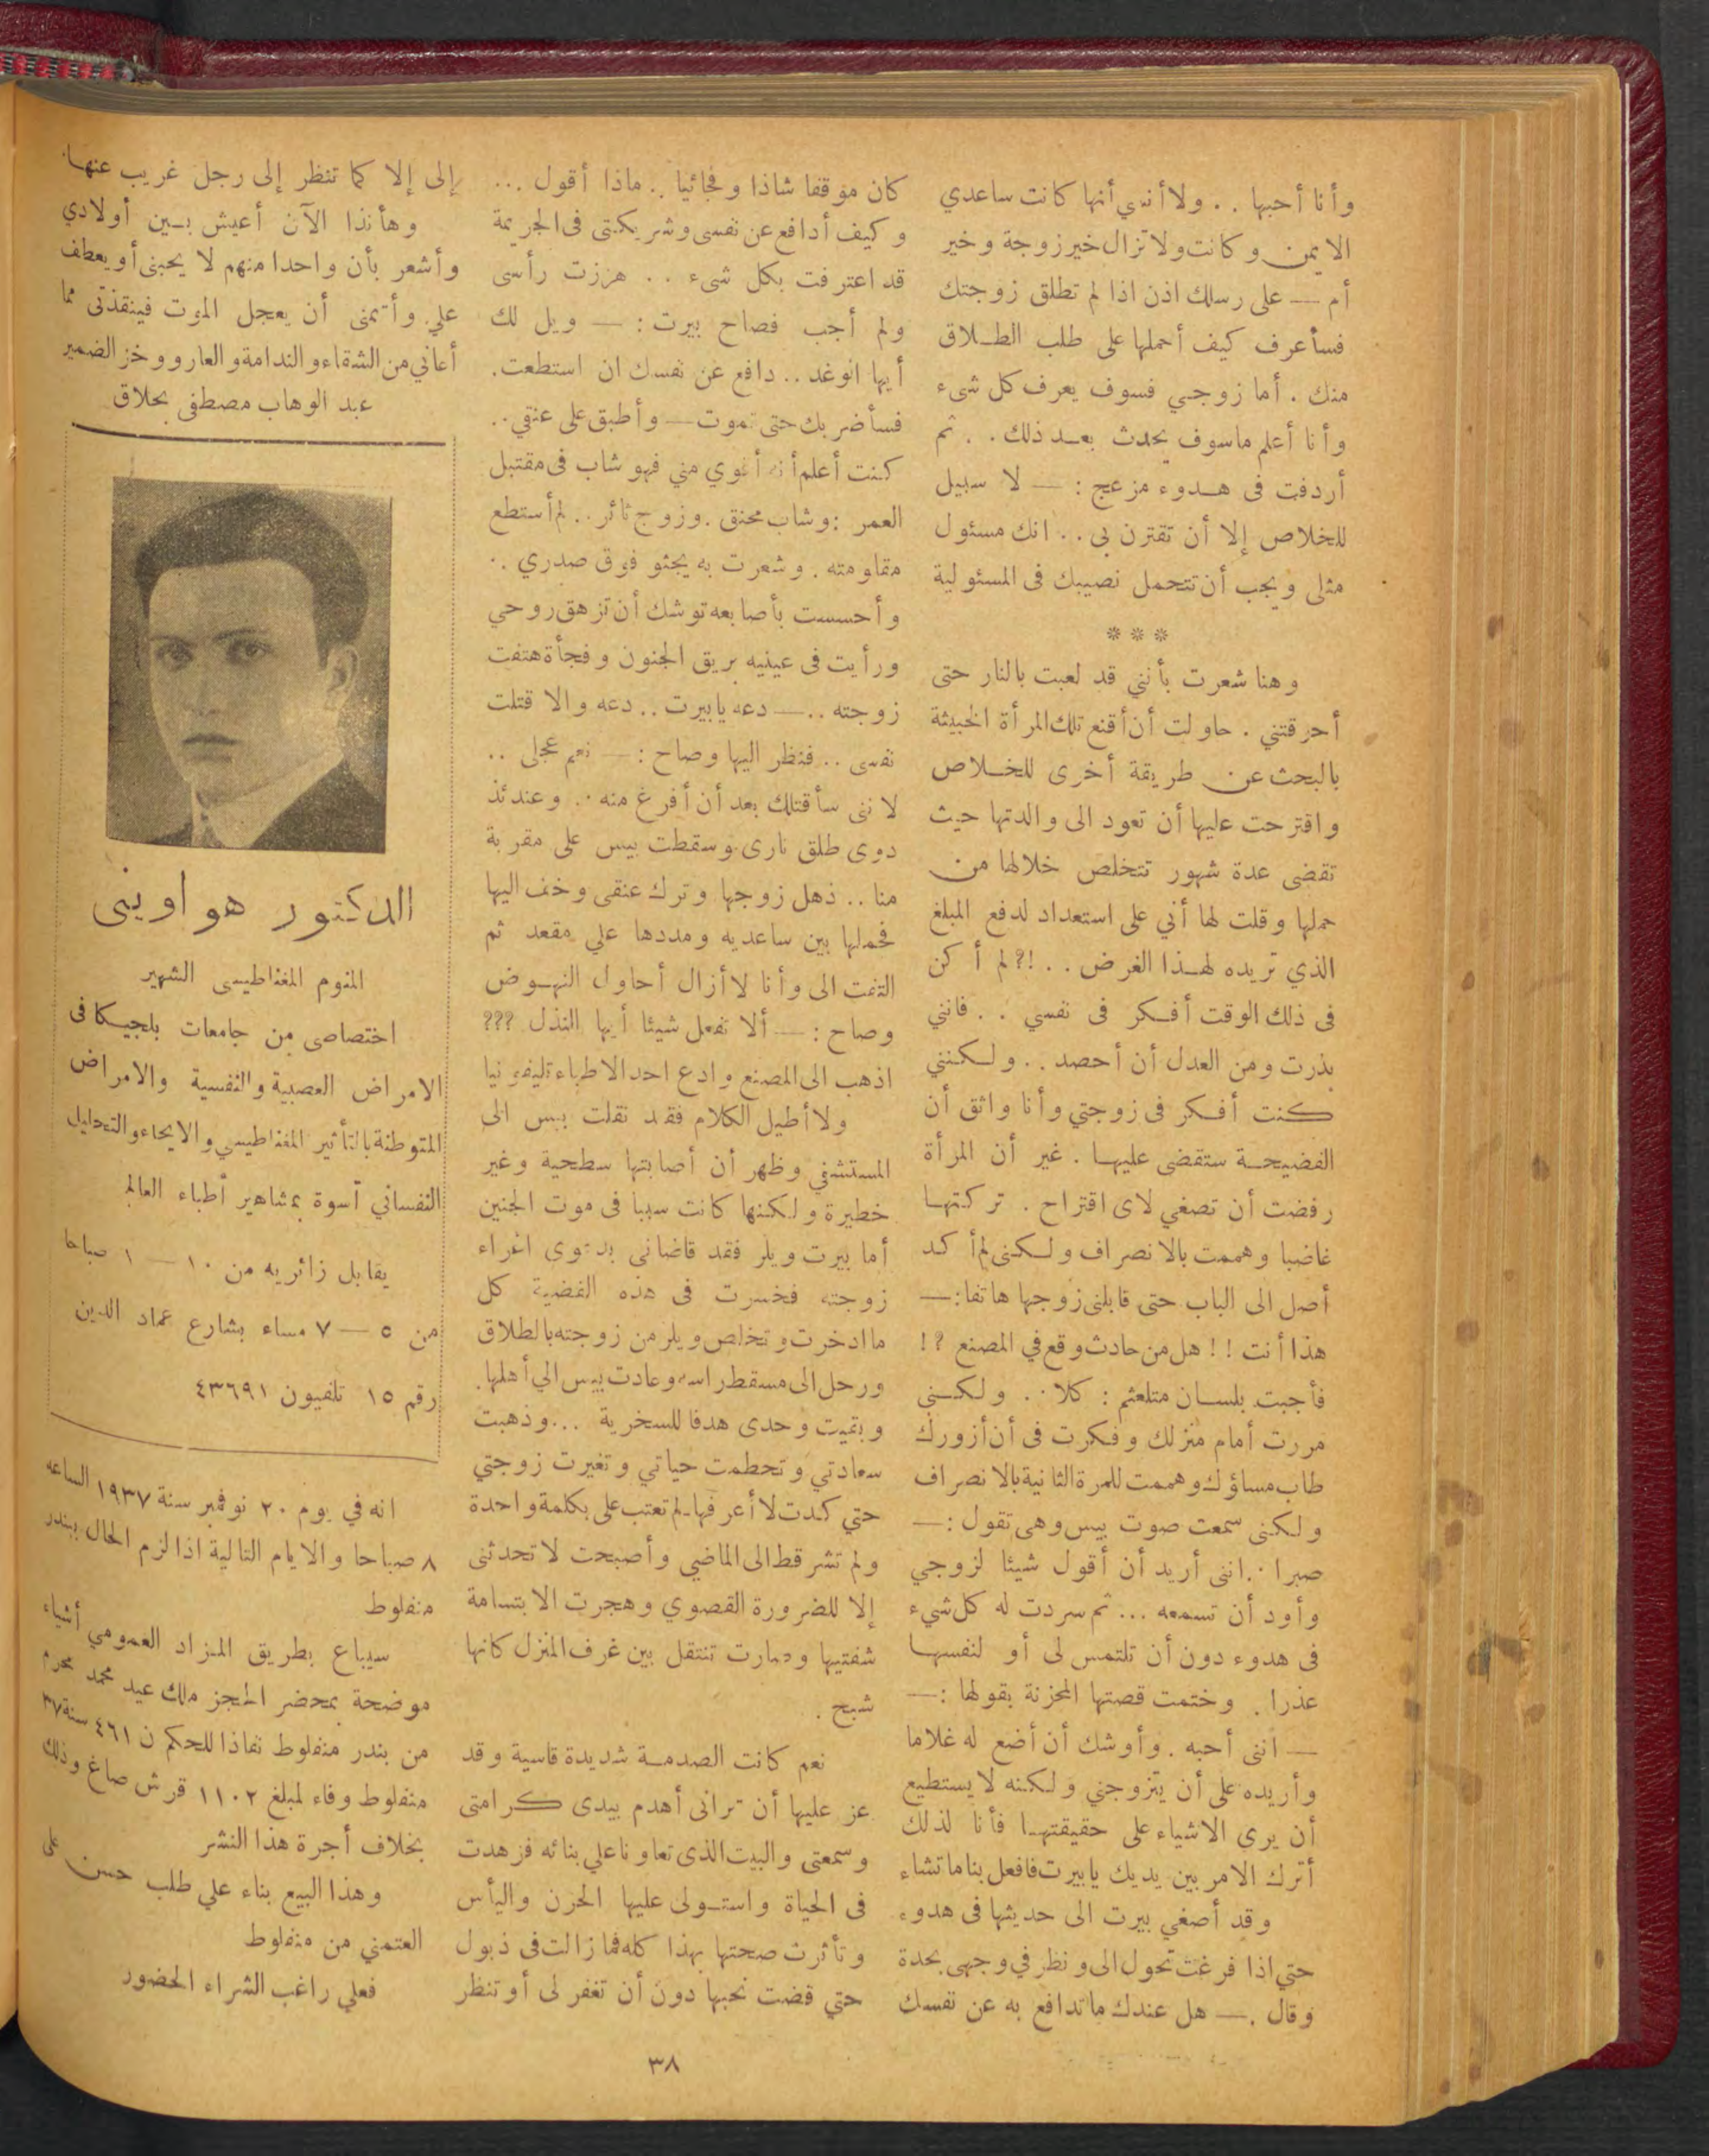 وأنا أحبها . . ولا أنسي أنها كانت ساعدي
الايمن وكانت ولا تزال خير زوجة وخير
أم — على رسلك اذن اذا لم تطلق زوجتك
فسأعرف كيف أحملها على طلب الطلاق
منك . أما زوجي فسوف يعرف كل شىء
وأنا أعلم ماسوف يحدث بعد ذلك . . ثم
أردفت فى هدوء مزعج : — لا سبيل
للخلاص إلا أن تقترن بى . . انك مسئول
مثلى ويجب أن تتحمل نصيبك فى المسئولية
* * *
وهنا شعرت بأنني قد لعبت بالنار حتى
أحرقتني . حاولت أن أقنع تلك المرأة الخبيثة
بالبحث عن طريقة أخرى للخلاص
واقترحت عليها أن تعود الى والدتها حيث
تقضى عدة شهور تتخلص خلالها من
حملها وقلت لها أني على استعداد لدفع المبلغ
الذي تريده لهذا الغرض . . !? لم أكن
فى ذلك الوقت أفكر فى نفسي . . فانني
بذرت ومن العدل أن أحصد . . ولكنني
كنت أفكر فى زوجتي وأنا واثق أن
الفضيحة ستقضى عليها . غير أن المرأة
رفضت أن تصغي لاى اقتراح . تركتها
غاضبا وهممت بالانصراف ولكنى لم أكد
أصل الى الباب حتى قابلنى زوجها هاتفا : —
هذا أنت ! ! هل من حادث وقع في المصنع ? !
فأجبت بلسان متلعثم : كلا . . ولكنى
مررت أمام منزلك وفكرت فى أن أزورك
طاب مساؤك وهممت للمرة الثانية بالانصراف
ولكنى سمعت صوت بيس وهى تقول : —
صبرا . . اننى أريد أن أقول شيئا لزوجي
وأود أن تسمعه ... ثم سردت له كل شيء
فى هدوء دون أن تلتمس لى أو لنفسها
عذرا . وختمت قصتها المحزنة بقولها : —
— اننى أحبه . وأوشك أن أضع له غلاما
وأريده على أن يتزوجني ولكنه لا يستطيع
أن يرى الاشياء على حقيقتها فأنا لذلك
أترك الامر بين يديك يابيرت فافعل بنا ماتشاء
وقد أصغي بيرت الى حديثها فى هدوء
حتي اذا فرغت تحول الى ونظر في وجهى بحدة
وقال . — هل عندك ماتدافع به عن نفسك
كان موقفا شاذا وفجائيا . . ماذا أقول ...
وكيف أدافع عن نفسى وشريكتى فى الجريمة
قد اعترفت بكل شىء . . هززت رأسى
ولم أجب فصاح بيرت : — ويل لك
أيها الوغد . . دافع عن نفسك ان استطعت .
فسأضربك حتى تموت — وأطبق على عنقي . .
كنت أعلم أنه أقوي مني فهو شاب فى مقتبل
العمر : وشاب محنق . وزوج ثائر . . لم أستطع
مقاومته . وشعرت به يجثو فوق صدري . .
وأحسست بأصابعه توشك أن تزهق روحي
ورأيت فى عينيه بريق الجنون وفجأة هتفت
زوجته . . — دعه يابيرت . . دعه والا قتلت
نفسى . . فنظر اليها وصاح : — نعم عجلى . .
لاننى سأقتلك بعد أن أفرغ منه . . وعندئذ
دوى طلق نارى وسقطت بيس على مقربة
منا . . ذهل زوجها وترك عنقى وخف اليها
فحملها بين ساعديه ومددها علي مقعد ثم
التفت الى وأنا لا أزال أحاول النهوض
وصاح : — ألا تفعل شيئا أيها النذل ???
اذهب الى المصنع وادع احد الاطباء تليفونيا
ولا أطيل الكلام فقد نقلت بيس الى
المستشفي وظهر أن أصابتها سطحية وغير
خطيرة ولكنها كانت سببا فى موت الجنين
أما بيرت ويلر فقد قاضانى بدعوى اغراء
زوجته فخسرت فى هذه القضية كل
ماادخرت وتخلص ويلر من زوجته بالطلاق
ورحل الى مسقط راسه وعادت بيس الي أهلها .
وبقيت وحدى هدفا للسخرية ... وذهبت
سعادتي وتحطمت حياتي وتغيرت زوجتي
حتي كدت لا أعرفها . لم تعتب على بكلمة واحدة
ولم تشر قط الى الماضي وأصبحت لا تحدثنى
إلا للضرورة القصوي وهجرت الابتسامة
شفتيها وصارت تنتقل بين غرف المنزل كانها
شبح .
نعم كانت الصدمة شديدة قاسية وقد
عز عليها أن ترانى أهدم بيدى كرامتى
وسمعتى والبيت الذى تعاونا علي بنائه فزهدت
فى الحياة واستولى عليها الحزن واليأس
وتأثرت صحتها بهذا كله فما زالت فى ذبول
حتي قضت نحبها دون أن تغفر لى أو تنظر
إلى إلا كما تنظر إلى رجل غريب عنها .
وهأنذا الآن أعيش بين أولادي
وأشعر بأن واحدا منهم لا يحبنى أو يعطف
علي . وأتمنى أن يعجل الموت فينقذنى مما
أعاني من الشقاء والندامة والعار ووخز الضمير
عبد الوهاب مصطفى بحلاق
الدكتور هواوينى
المنوم المغناطيسى الشهير
اختصاصى من جامعات بلجيكا فى
الامراض العصبية والنفسية والامراض
المتوطنة بالتأثير المغناطيسي والايحاء والتحليل
النفساني أسوة بمشاهير أطباء العالم
يقابل زائريه من ١٠ — ١ صباحا
من ٥ — ٧ مساء بشارع عماد الدين
رقم ١٥ تلفيون ٤٣٦٩١
انه في يوم ٢٠ نوفمبر سنة ١٩٣٧ الساعه
٨ صباحا والايام التالية اذا لزم الحال ببندر
منفلوط
سيباع بطريق المزاد العمومي أشياء
موضحة بمحضر الحجز ملك عيد محمد محرم
من بندر منفلوط نفاذا للحكم ن ٤٦١ سنة ٣٧
منفلوط وفاء لمبلغ ١١٠٢ قرش صاغ وذلك
بخلاف أجرة هذا النشر
وهذا البيع بناء علي طلب حسن على
العتمني من منفلوط
فعلي راغب الشراء الحضور
٣٨